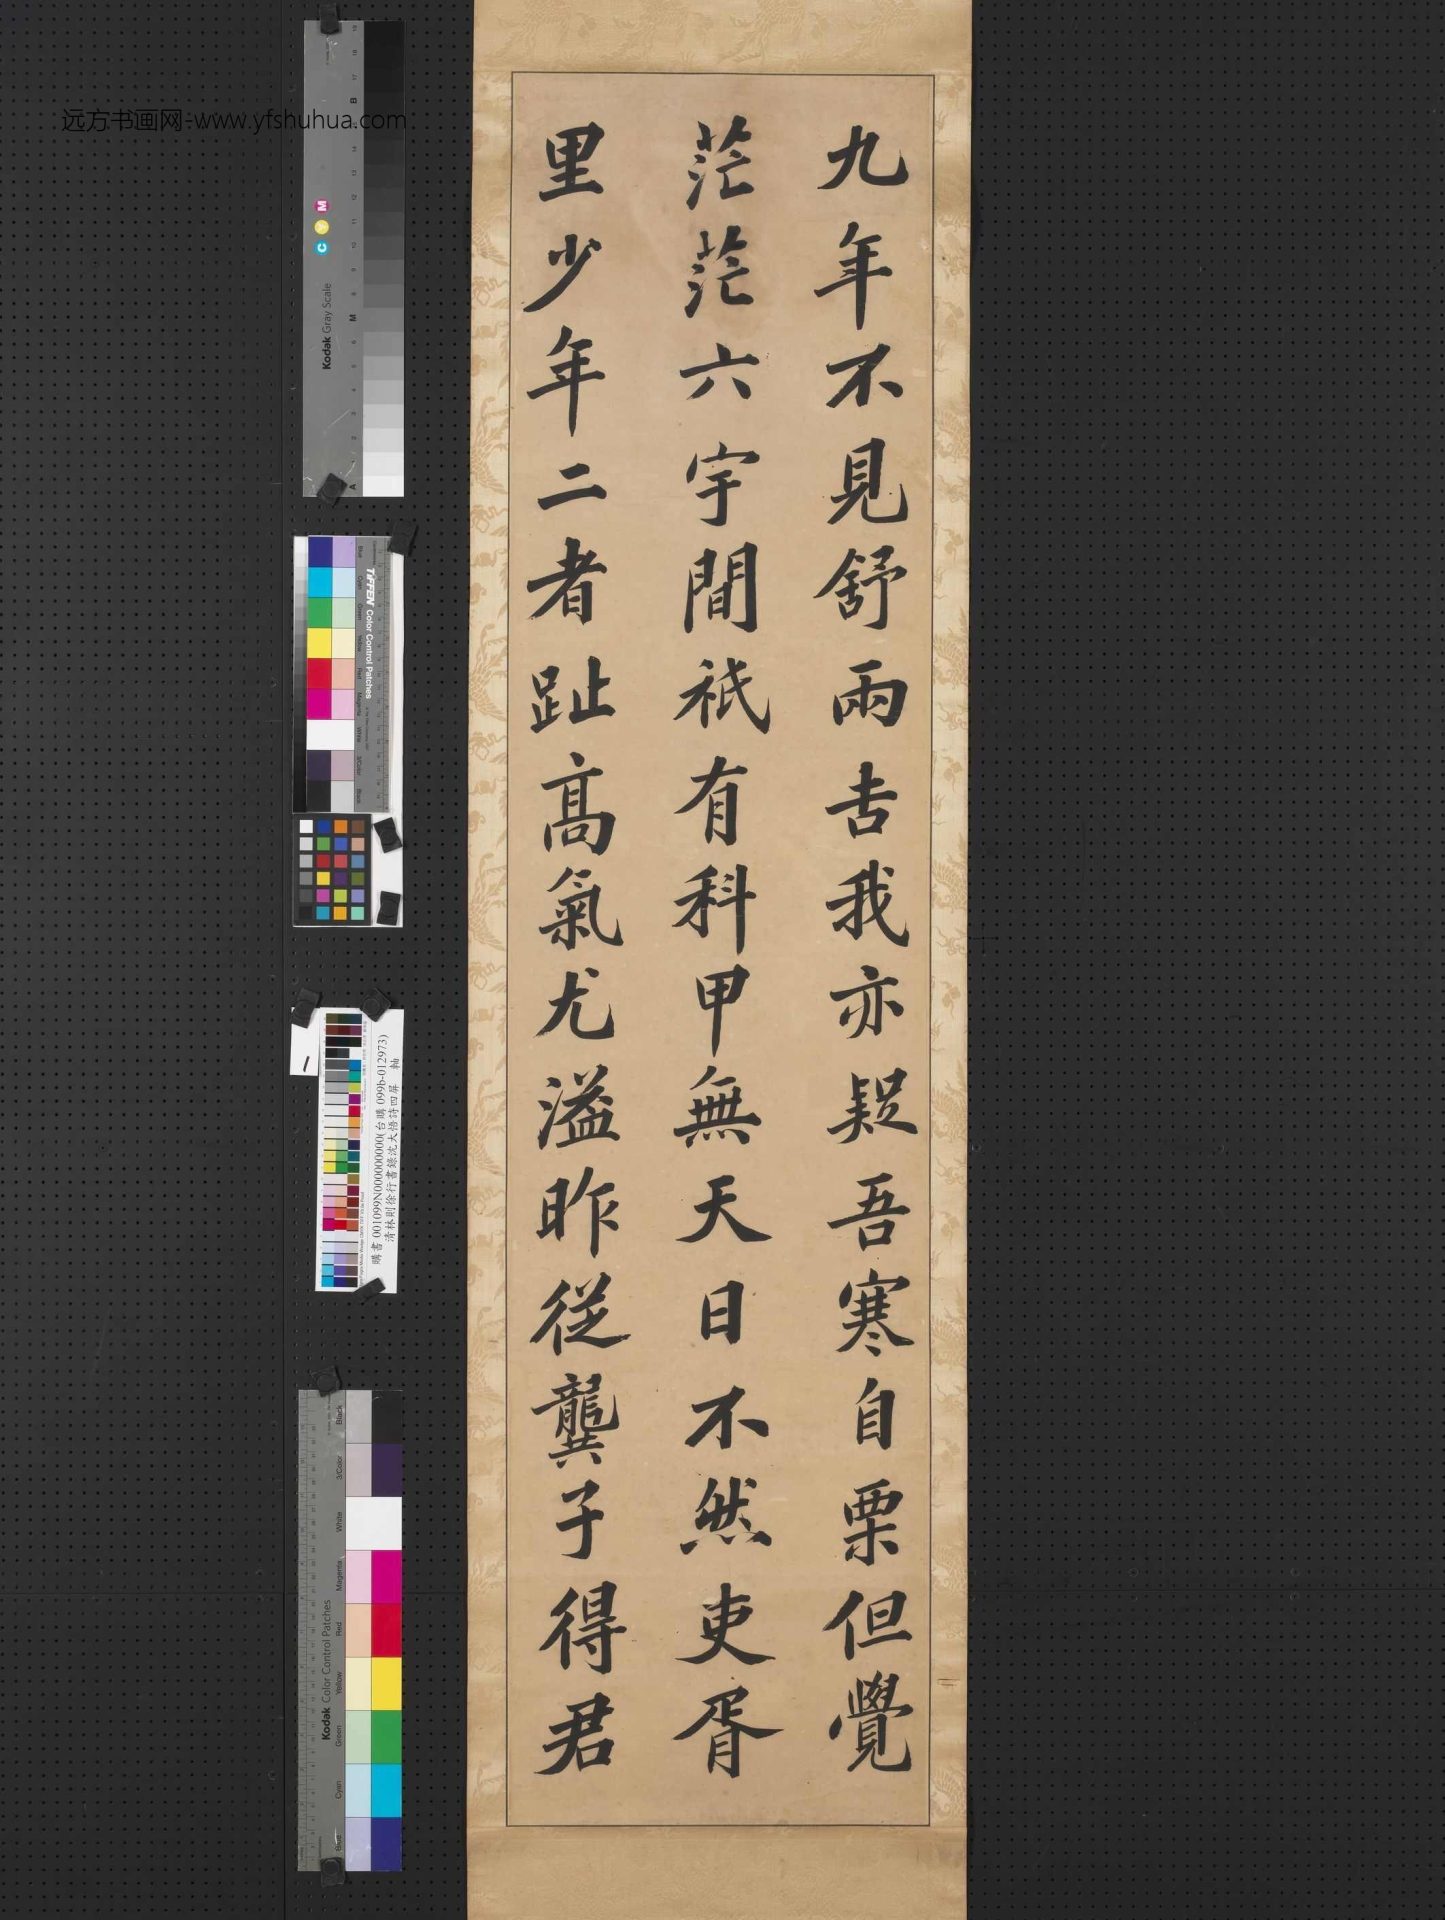 九年不見舒兩𠮷我亦疑吾寒自栗但覺
茫茫六宇間祇有科甲無天日不然吏胥
里少年二者趾高氣尤溢昨從龔子得君
远方书画网-www.yfshuhua.com
Kodak Gray Scale
C Y M
TIFFEN Color Control Patches
Blue Cyan Green Yellow Red Magenta White 3/Color Black
購書 001099N000000000(台購 099b-012973)
清林則徐行書錄沈大悟詩四屏 軸
Kodak Color Control Patches
Blue Cyan Green Yellow Red Magenta White 3/Color Black